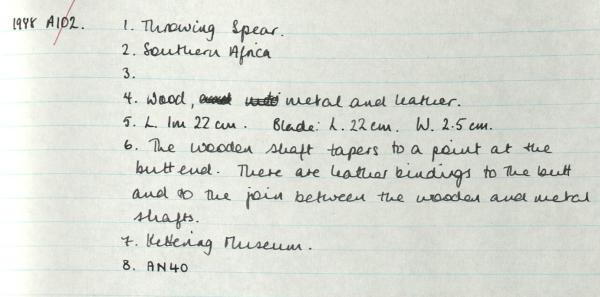 1948 A102. 1. Throwing Spear.
2. Southern Africa
3.
4. Wood, metal and leather.
5. L. 1m 22 cm. Blade: L. 22cm. W. 2.5 cm.
6. The wooden shaft tapers to a point at the
butt end. There are leather bindings to the butt
and to the join between the wooden and metal
shafts.
7. Kettering Museum.
8. AN40